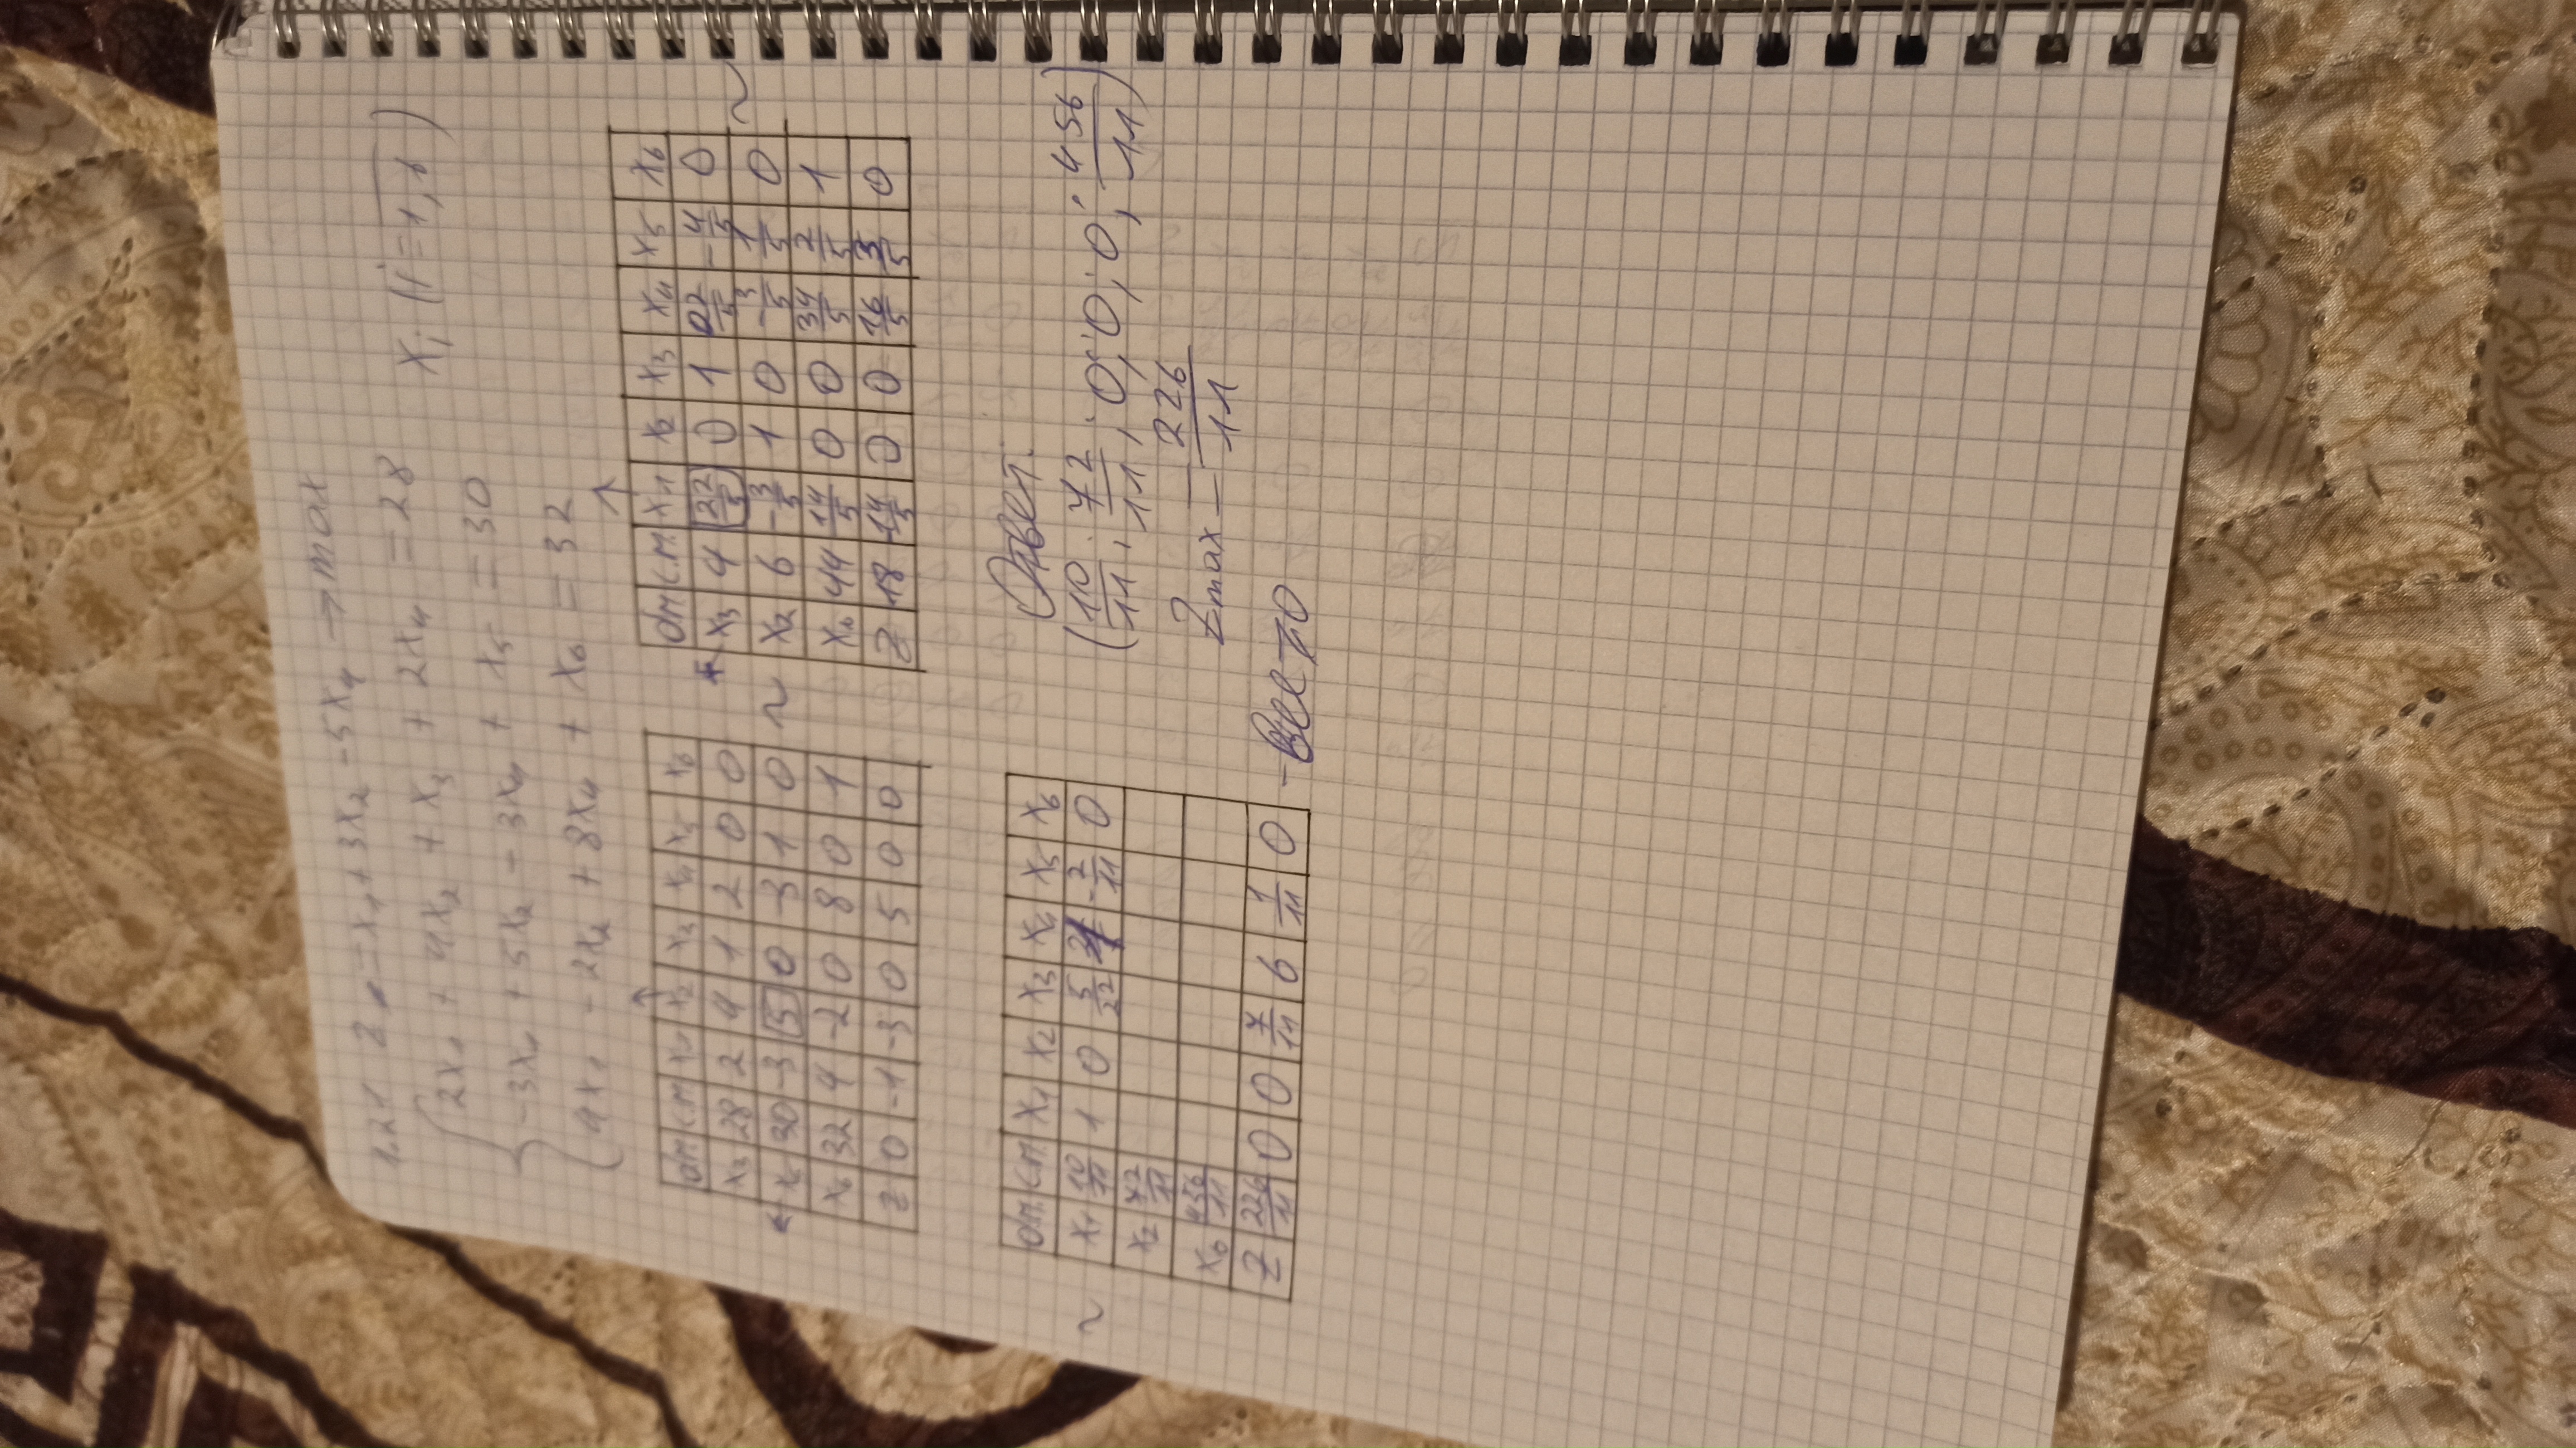 1.21 Z = x₁ + 3x₂ - 5x₄ → max
2x₁ + 4x₂ + x₃ + 2x₄ = 28 xᵢ (i = 1,6)
-3x₁ + 5x₂ - 3x₄ + x₅ = 30
4x₁ - 2x₂ + 8x₄ + x₆ = 32
б.п. с.ч. x₁ x₂ x₃ x₄ x₅ x₆
x₃ 28 2 4 1 2 0 0
← x₅ 30 -3 5 0 -3 1 0 ~
x₆ 32 4 -2 0 8 0 1
Z 0 -1 -3 0 5 0 0
б.п. с.ч. x₁ x₂ x₃ x₄ x₅ x₆
← x₃ 4 22/5 0 1 22/5 -4/5 0 ~
x₂ 6 -3/5 1 0 -3/5 1/5 0
x₆ 44 14/5 0 0 34/5 2/5 1
Z 18 -14/5 0 0 16/5 3/5 0
б.п. с.ч. x₁ x₂ x₃ x₄ x₅ x₆
~ x₁ 10/11 1 0 5/22 1 -2/11 0
x₂ 72/11
x₆ 456/11
Z 226/11 0 0 7/11 6 1/11 0 - все ≥ 0
Ответ:
(10/11; 72/11; 0; 0; 0; 456/11)
Zmax = 226/11